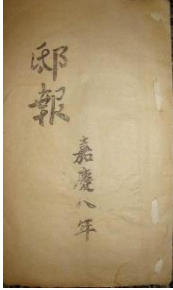 邸報
嘉慶八年